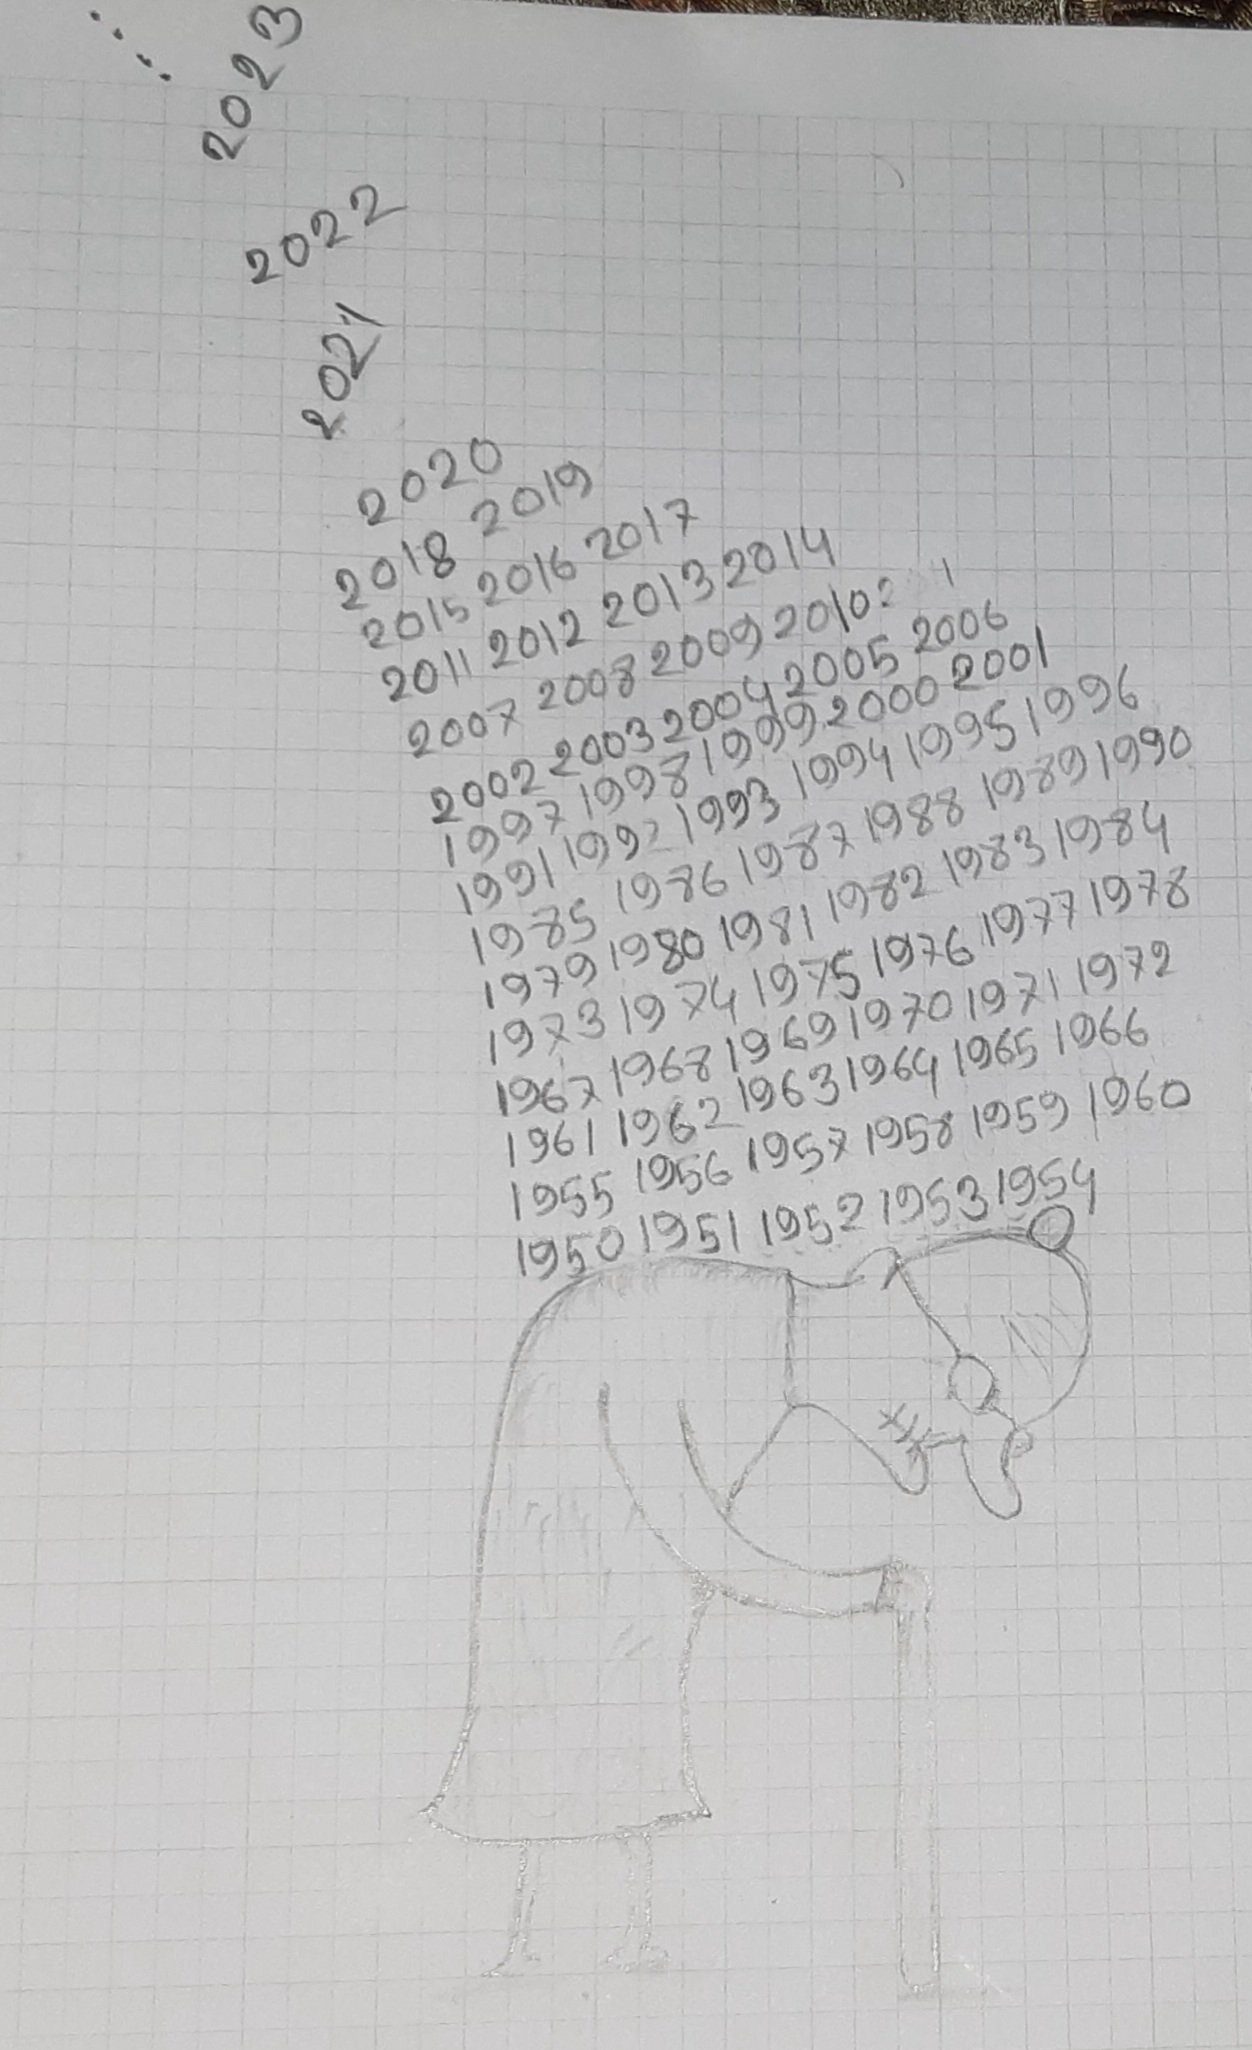 2023
2022
2021
2020
2018 2019
2015 2016 2017
2011 2012 2013 2014
2007 2008 2009 2010
2002 2003 2004 2005 2006
1997 1998 1999 2000 2001
1991 1992 1993 1994 1995 1996
1985 1986 1987 1988 1989 1990
1979 1980 1981 1982 1983 1984
1973 1974 1975 1976 1977 1978
1967 1968 1969 1970 1971 1972
1961 1962 1963 1964 1965 1966
1955 1956 1957 1958 1959 1960
1950 1951 1952 1953 1954